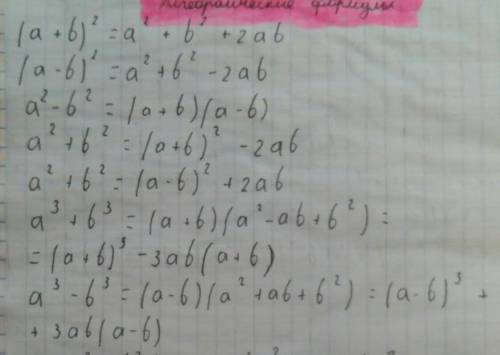 Алгебраические формулы
(a + b)² = a² + b² + 2ab
(a - b)² = a² + b² - 2ab
a² - b² = (a + b)(a - b)
a² + b² = (a+b)² - 2ab
a² + b² = (a-b)² + 2ab
a³ + b³ = (a+b)(a² - ab + b²) =
= (a+b)³ - 3ab(a+b)
a³ - b³ = (a-b)(a² + ab + b²) = (a-b)³ +
+ 3ab(a-b)